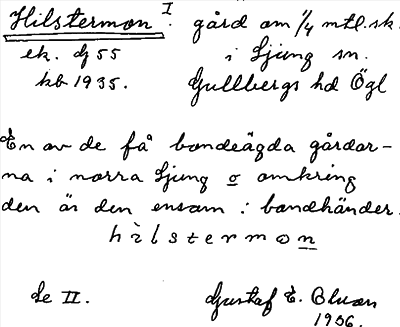 Hilstermon I. gård om 1/4 mtl. sk.
ek. dj 55 i Ljung sn.
kb 1935. Gullbergs hd Ögl
En av de få bondeägda gårdar-
na i norra Ljung o omkring
den är den ensam i bondhänder.
hilstermon
Se II. Gustaf E.
1936.